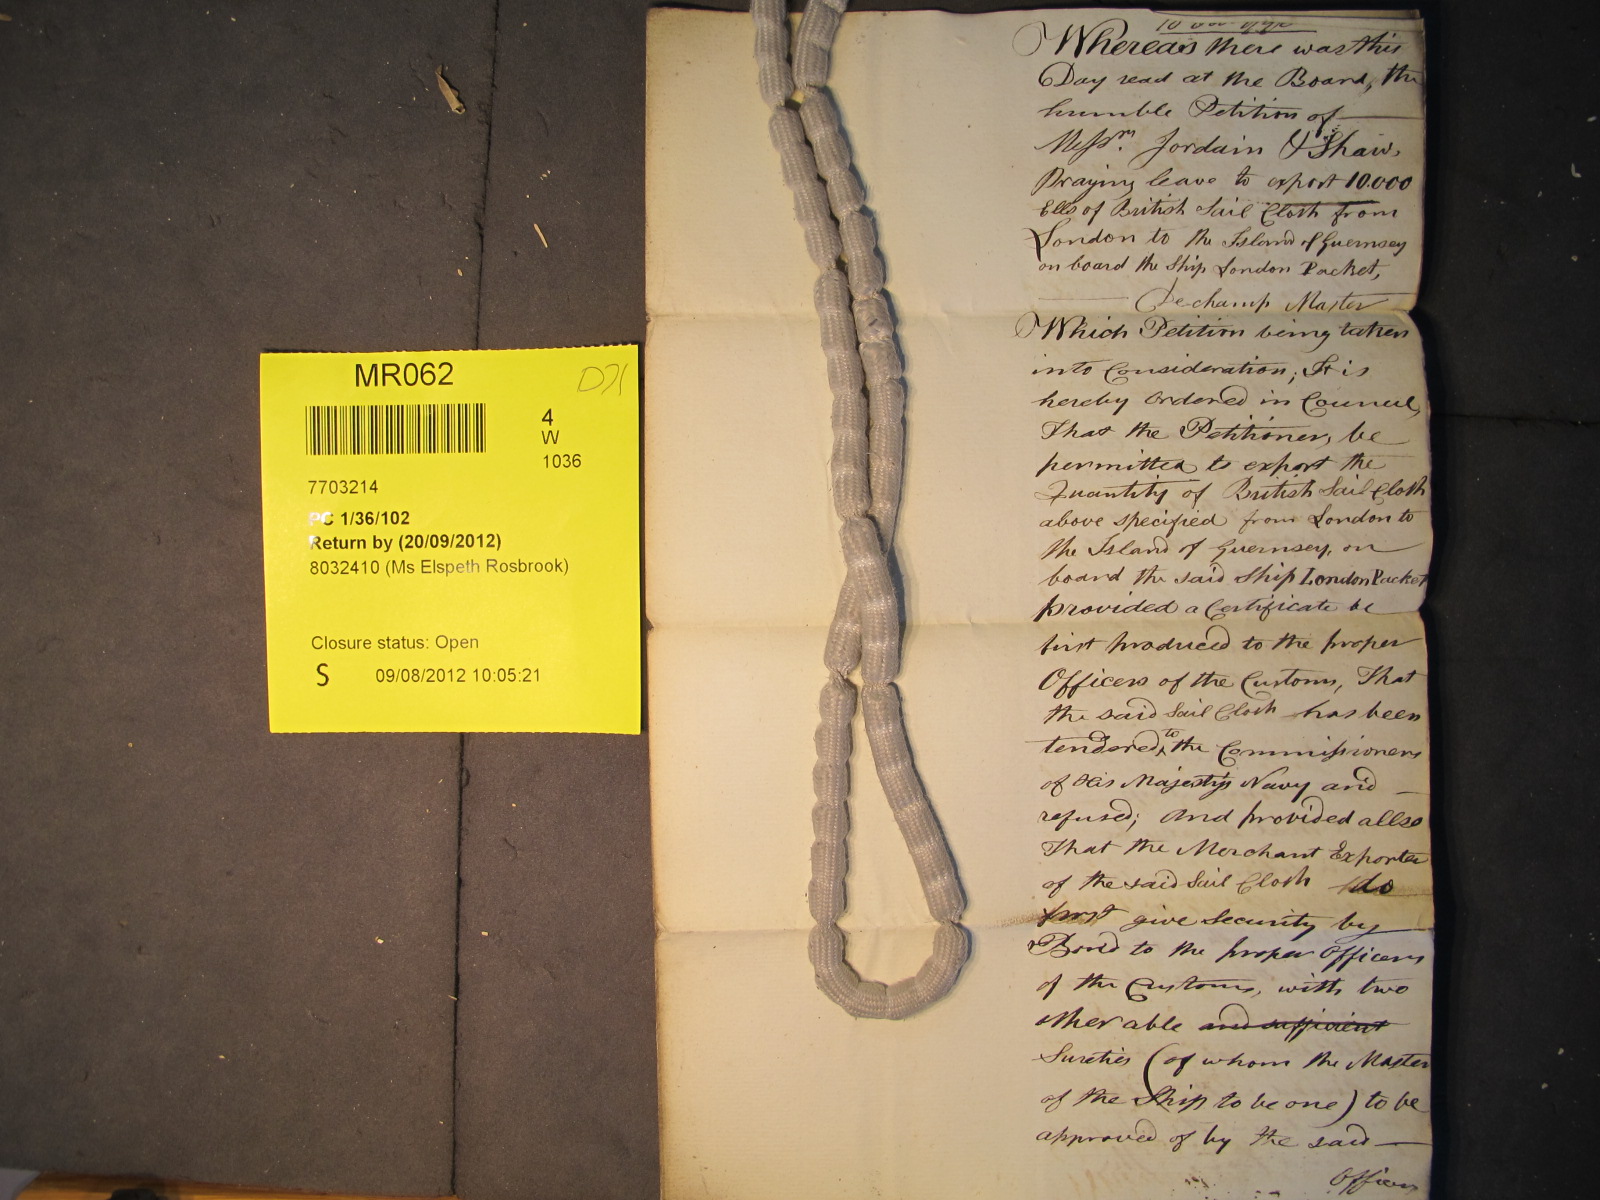 MR062
D71
4
W
1036
7703214
PC 1/36/102
Return by (20/09/2012)
8032410 (Ms Elspeth Rosbrook)
Closure status: Open
S 09/08/2012 10:05:21
Whereas there was this
Day read at the Board, the
humble Petition of
Messrs. Jordain & Shaw,
Praying leave to export 10.000
Ells of British Sail Cloth from
London to the Island of Guernsey
on board the Ship London Packet,
Dechamp Master
Which Petition being taken
into Consideration; It is
hereby Ordered in Council,
That the Petitioners, be
permitted to export the
Quantity of British Sail Cloth
above specified from London to
the Island of Guernsey, on
board the said Ship London Packet
provided a Certificate be
first produced to the proper
Officers of the Customs, That
the said Sail Cloth has been
tendered to the Commissioners
of His Majesty's Navy and
refused; And provided allso
That the Merchant Exporter
of the said Sail Cloth do
first give Security by
Bond to the proper Officers
of the Customs, with two
other able and sufficient
Sureties (of whom the Master
of the Ship to be one) to be
approved of by the said
Officers